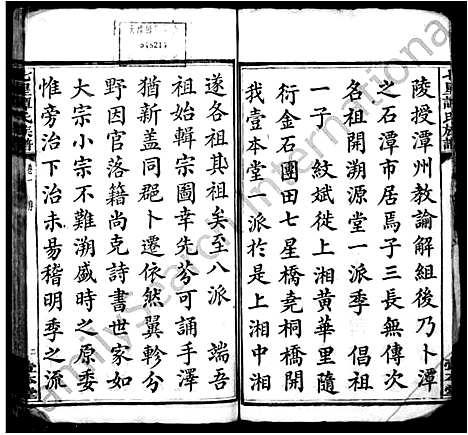 陵授潭州教諭解組後乃卜潭
之石潭市居焉子三長無傳次
名祖開溯源堂一派季 倡祖
一子 紋斌徙上湘黃華里隨
衍金石團田七星橋堯桐橋開
我壹本堂一派於是上湘中湘
遂各祖其祖矣至八派 端吾
祖始輯宗圖幸先芬可誦手澤
猶新蓋同兕卜遷依然翼軫分
野因官落籍尚克詩書世家如
大宗小宗不難溯盛時之原委
惟旁治下治未易稽明季之流
七里譚氏族譜
卷一
壹本堂
FamilySearch International